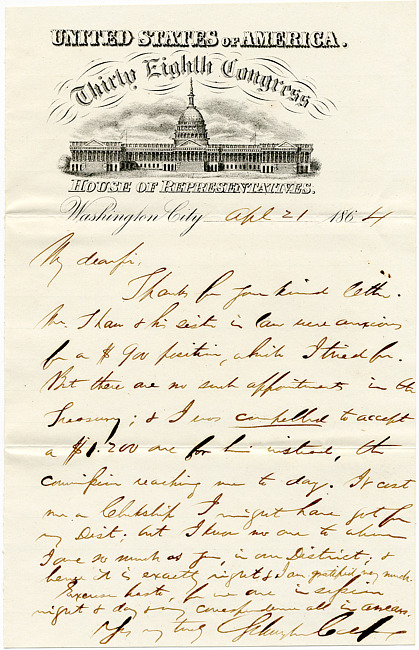 UNITED STATES OF AMERICA.
Thirty Eighth Congress
HOUSE OF REPRESENTATIVES.
Washington City Apl 21 1864
My dear sir,
Thanks for your kind letter.
Mr. & his sister in law were anxious
for a $900 position, which I tried for.
But there are no such appointments in the
Treasury; & I was compelled to accept
a $1.200 one for him instead, the
commission reaching me to day. It cost
me a Clerkship I might have got for
my Dist; but I know no one to whom
I owe so much as you, in our District; &
hence it is exactly right & I am gratified very much.
Excuse haste, for we are in session
night & day & my correspondence all in arrears.
Yrs very truly Schuyler Colfax